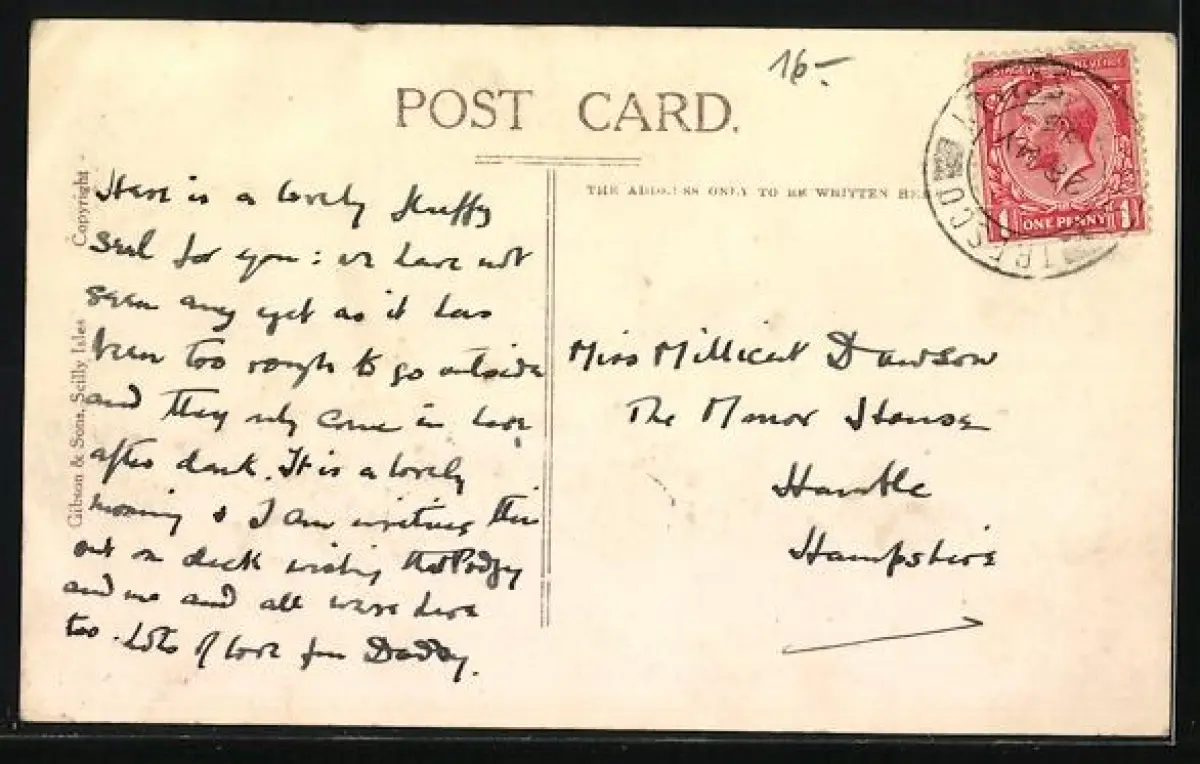 16-
POST CARD.
THE ADDRESS ONLY TO BE WRITTEN HE
TRESCO
ONE PENNY
1 1
Copyright
Gibson & Sons, Scilly Isles
Here is a lovely fluffy
seal for you: we have not
seen any yet as it has
been too rough to go outside
and they only come in here
after dark. It is a lovely
morning & I am writing this
out on deck wishing that
and all were here
too. Lots of love from Daddy.
Miss Millicent Dawson
The Manor House
Hamble
Hampshire